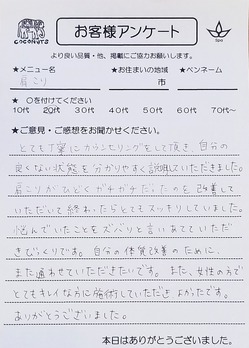 COCONUTS
お客様アンケート
spa
より良い品質・他、掲載にご協力お願いします。
★メニュー名
★お住まいの地域
★ペンネーム
肩こり
市
★ ○を付けてください
10代 20代 30代 40代 50代 60代 70代～
★ご意見・ご感想をお聞かせください。
とても丁寧にカウンセリングをして頂き、自分の
良くない状態を分かりやすく説明していただきました。
肩こりがひどくガチガチだったのを改善して
いただいて終わったらとてもスッキリしていました。
悩んでいたことをズバリと言いあてていただ
きびっくりです。自分の体質改善のために、
また通わせていただきたいです。また、女性の方で
とてもキレイな方に施術していただきよかったです。
ありがとうございました。
本日はありがとうございました。